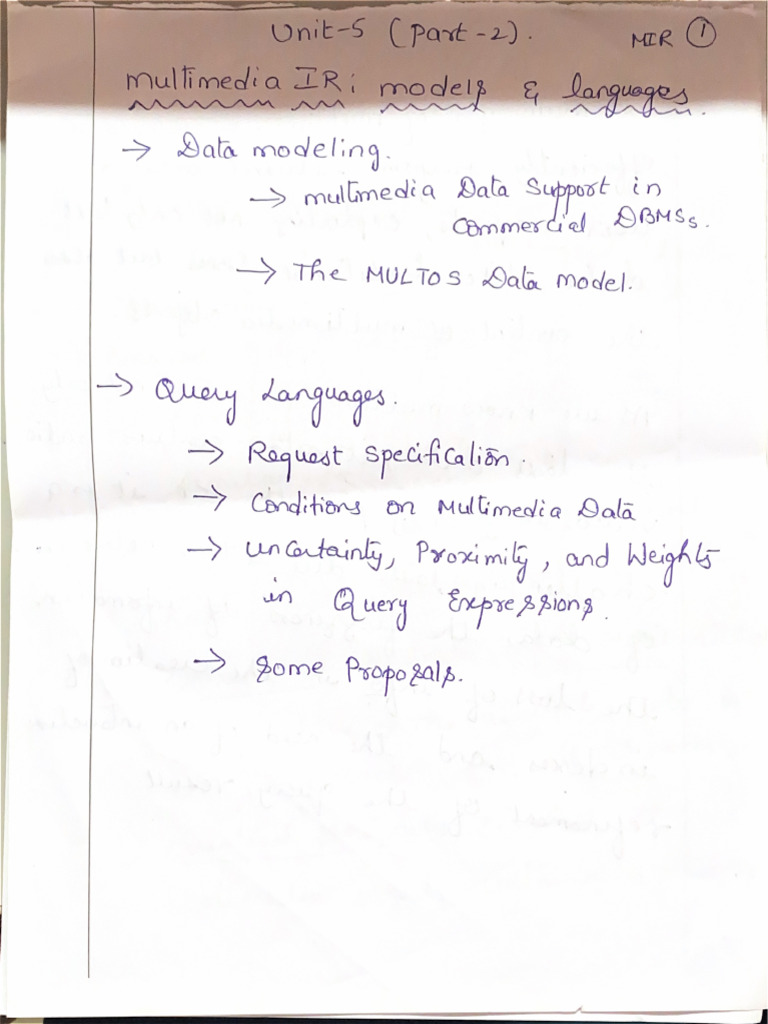 Unit-5 (Part-2).
MIR 1
Multimedia IR: models & languages.
→ Data modeling.
→ multimedia Data Support in
Commercial DBMSs.
→ The MULTOS Data Model.
→ Query Languages.
→ Request Specification.
→ Conditions on Multimedia Data
→ Uncertainty, Proximity, and Weights
in Query Expressions.
→ Some Proposals.